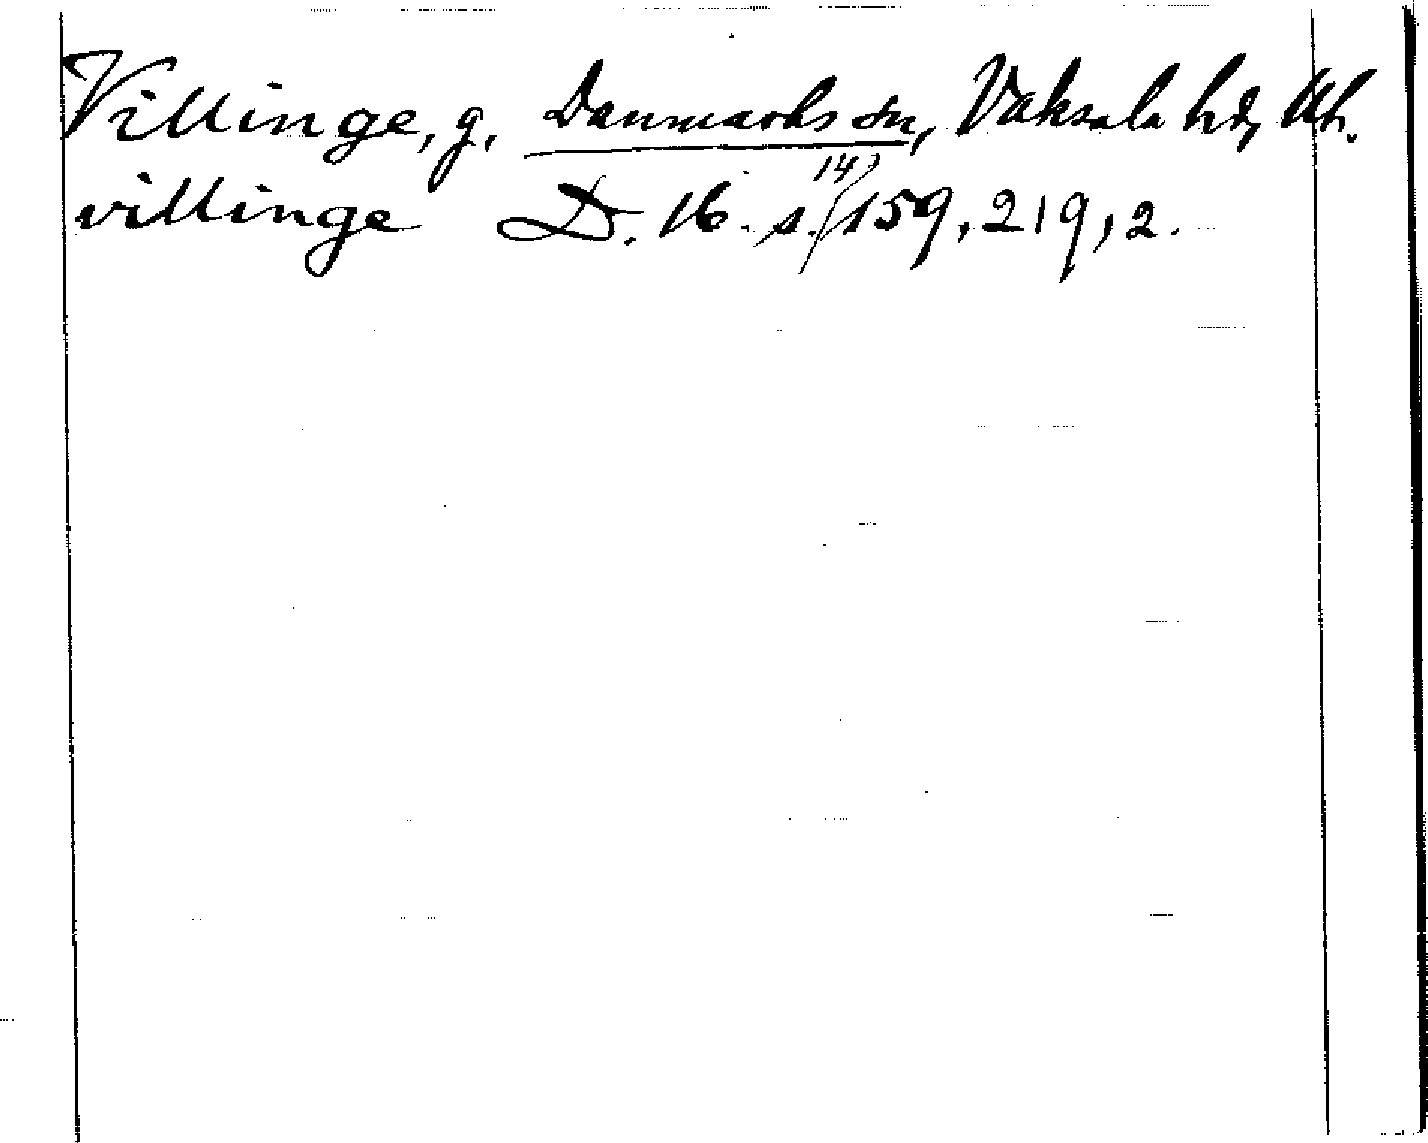 Villinge, g, Danmarks sn, Vaksala hd, Uh.
villinge D. 16. s. 14) 159, 219, 2.